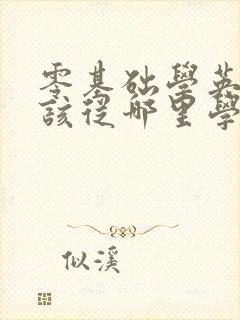 零基础學英
該從哪里學
似溪